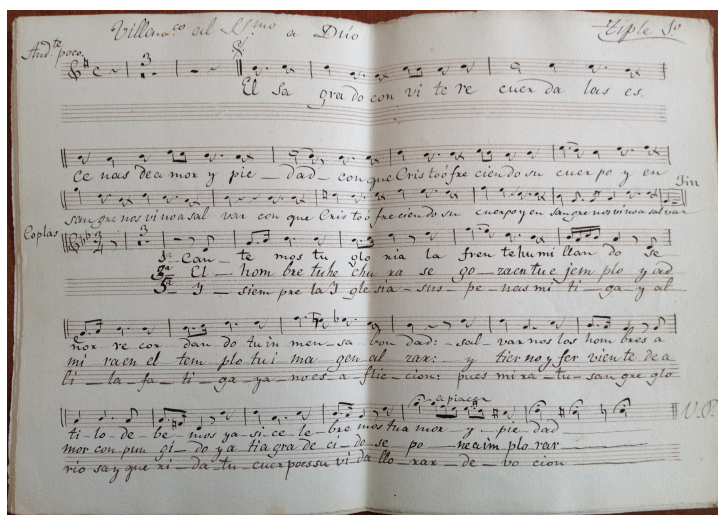 Villan.co al SS.mo a Duo
Tiple 1º
And.te poco.
3
El sa gra do con vi te re cuer da las es.
ce nas de a mor y pie – dad – con que Cris to ó fre cien do su cuer po y en
Fin
san gre nos vi no a sal var con que Cris to ó fre cien do su cuerpo y en sangre nos vi no a salvar
Coplas
3
1ª Can – te mos tu glo ria la fren te hu mi llan do se
3ª El – hom bre tu he chu ra se go – za en tu e jem plo y ad
5ª Y – siem pre la Y gle sia – sus – pe nas mi ti – ga – y al
ñor re cor dan do tu in men – sa bon dad: – sal – var nos los hom bres a
mi ra en el tem plo tu i ma gen al zar: – y tier no y fer vien te de a
li – la – fa – ti – ga – ya – no es – a – flic – cion: pues mi ra – tu – san gre glo
a piacer
V.P.
ti – lo – de – be – mos ya – si – ce – le – bre mos tu a mor – y – pie dad
mor con pun gi – do y a tia gra de ci – do – se po – ne a im plo rar
rio sa y que ri – da – tu – cuer po es su vi da llo – rar – de – vo cion